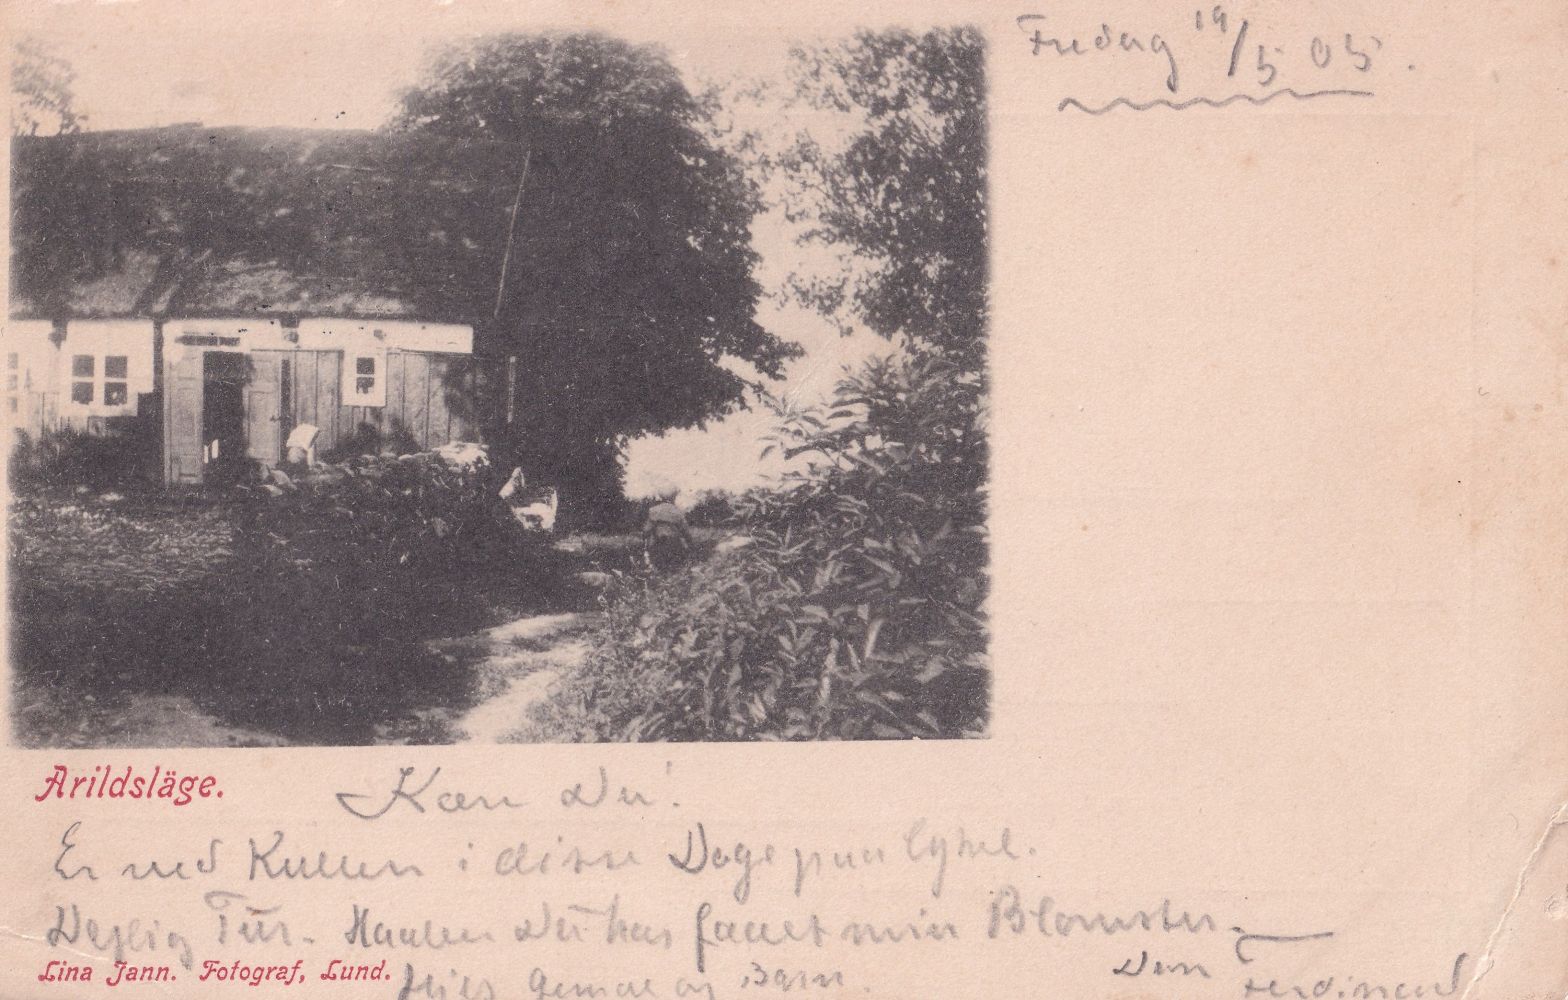 Fredag 19/5 05.
Arildsläge.
Kære Du!
Er ved Kullen i disse Dage paa Cykel.
Dejlig Tur. Haaber Du har faaet min Blomster.
Lina Jann. Fotograf, Lund.
Hils Gemal og Børn.
Din Ferdinand